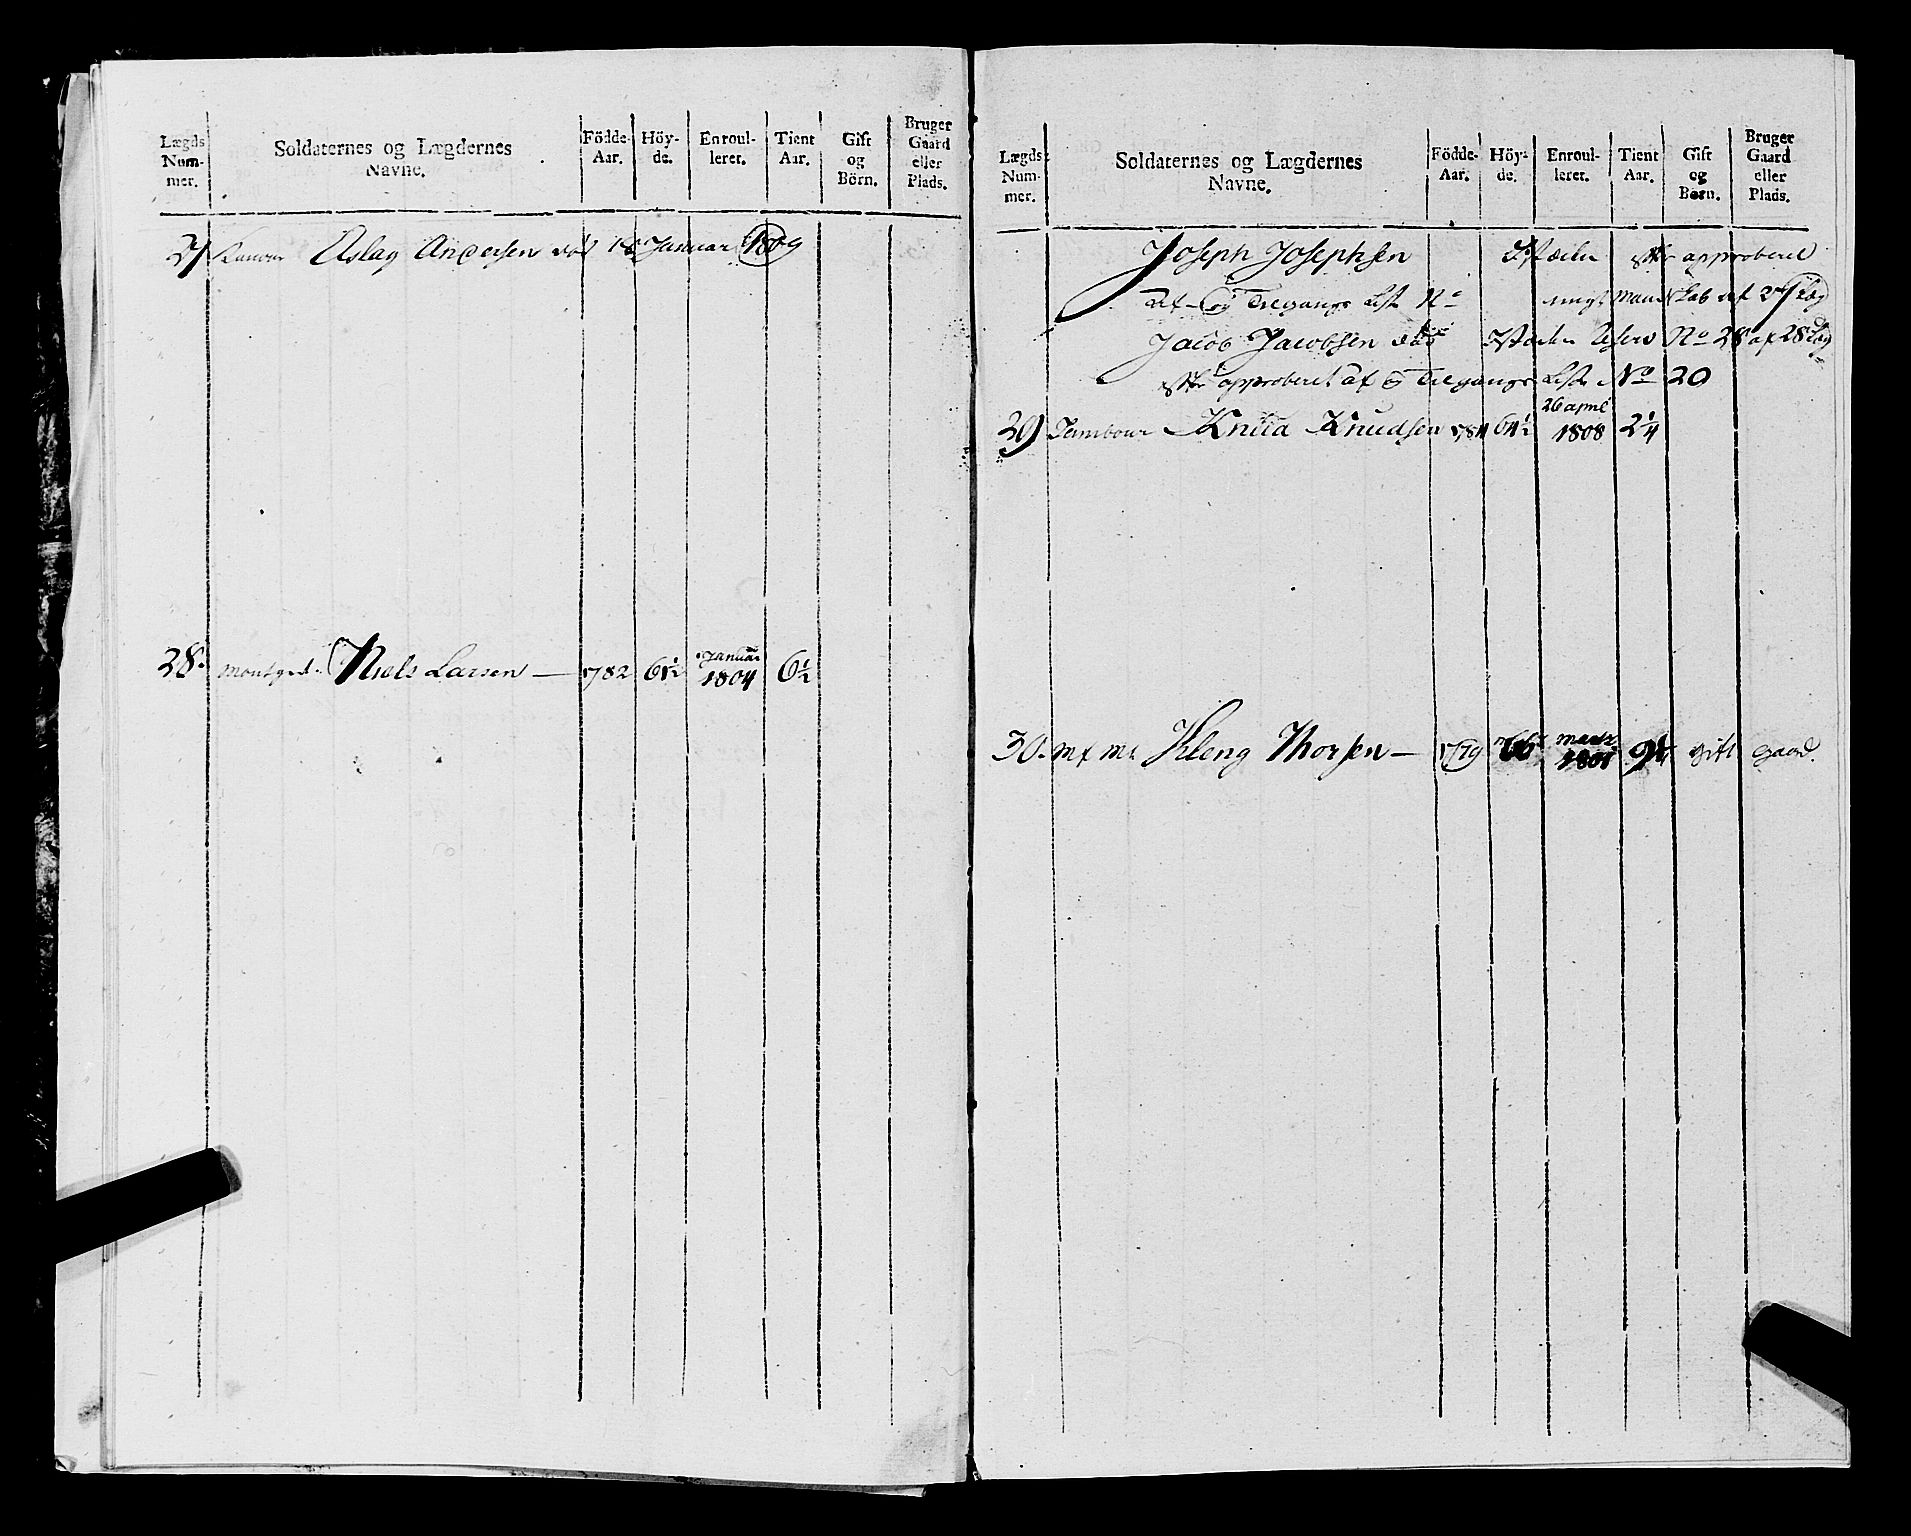 Lægds Num-mer. Soldaternes og Lægdernes Navne. Födde-Aar. Höy-de. Enroul-leret. Tient Aar. Gift og Börn. Bruger Gaard eller Plads.
27 Aslag Andersen död 18 Januar 1809
28. Niels Larsen — 1782 Januar 1804 6½
Lægds Num-mer. Soldaternes og Lægdernes Navne. Födde-Aar. Höy-de. Enroul-leret. Tient Aar. Gift og Börn. Bruger Gaard eller Plads.
Joseph Josephsen approberet
Tilgangs List No af 27 Læg
Jacob Jacobsen No 28 af 28 Læg
approberet af Tilgangs List No 20
26 april
29 Tambour Knud Knudsen 1784 64½ 1808 2¼
30. Kleng Thorsen — 1779 marts 1801 9¼ gift gaard.